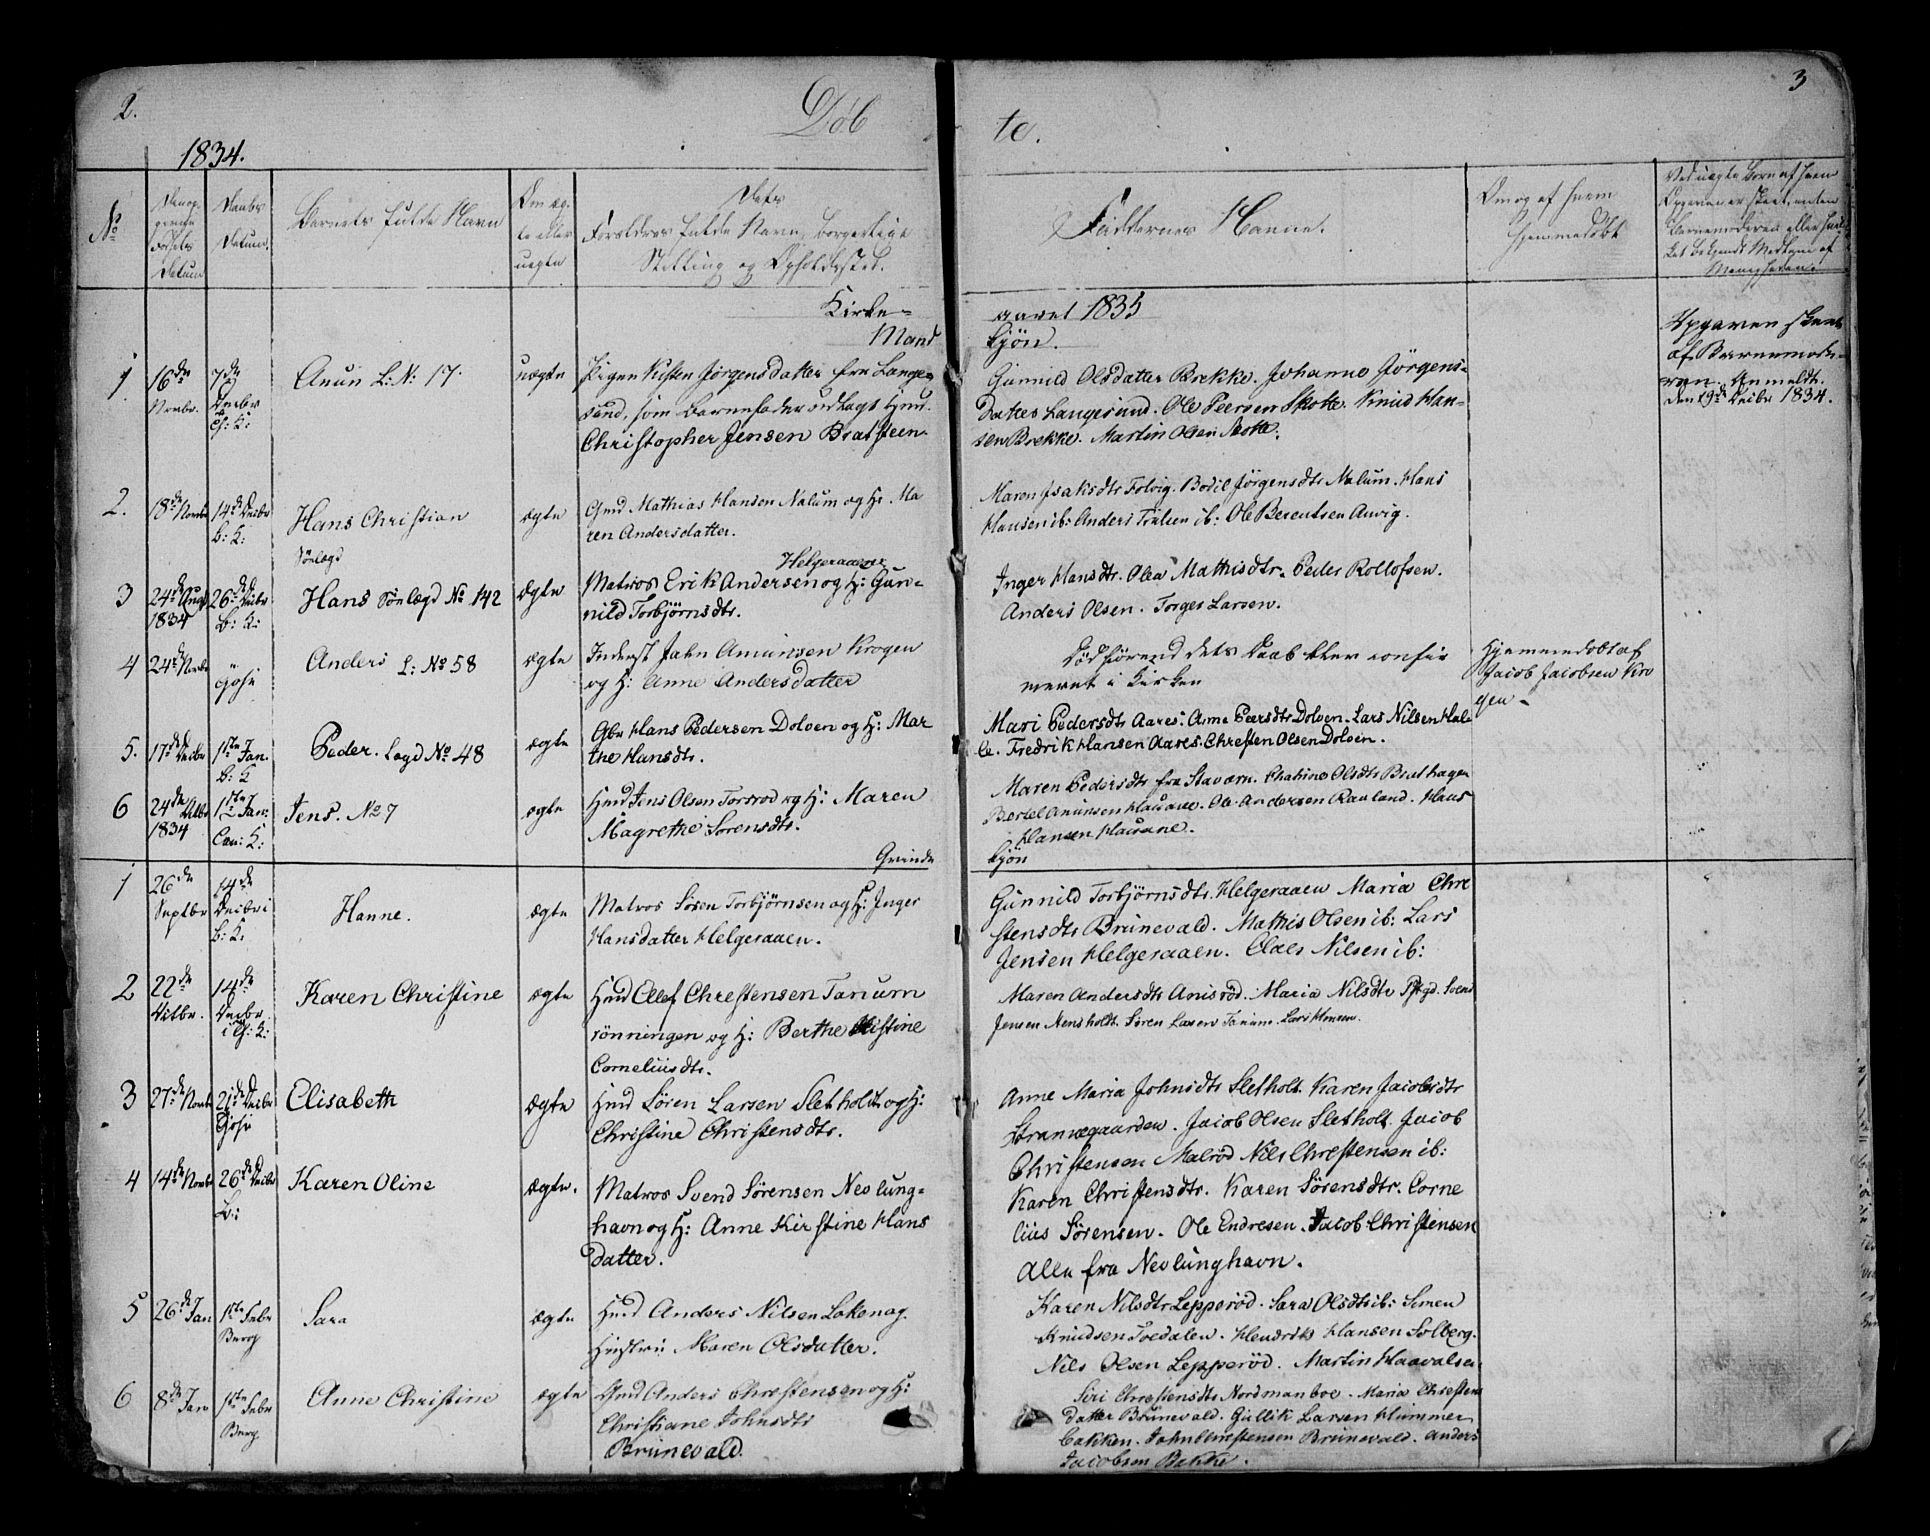 2.
Døb
te.
3
1834.
No
Daabs
Datum.
Barnets fulde Navn
Om æg-
te eller
uægte
Dets
Forældres fulde Navn, borgerlige
Stilling og Opholdssted.
Faddernes Navne.
Om og af hvem
hjemmedøbt
Ved uægte Børn af hvem
Opgaven er skeet, enten
Barnemoderen eller
Menigheden.
Kirke-
aaret 1835
Mand
kjøn.
1 16de Novbr. 7de Decbr Anun L: N: 17. uægte Pigen Kisten Jørgensdatter fra Lange-
sund, som Barnefader udlagt
Christopher Jensen Bratsteen.
Gunnild Olsdatter Brekke. Johanne Jörgens-
datter Langesund. Ole Peersen Skotte. Knud Han-
sen Brekke. Martin Olsen Skotte.
Opgaven skeet
af Barnemode-
ren. Anmeldt.
den 19de Decbr 1834.
2. 18de Novbr 14de Decbr B: K: Hans Christian ægte Gmd Mathias Hansen Nalum og H: Ma
ren Andersdatter.
Maren Isaksdtr Folvig. Bodil Jørgensdtr Nalum. Hans
Hansen ib: Anders Troelsen ib: Ole Berentsen Anvig.
Sönlægd
3 24de Augt 1834 26de Decbr B: K: Hans Sönlægd No 142 Ægte Matros Erik Andersen og H: Gun-
Helgeraaen
nild Torbjørnsdtr.
Inger Hansdtr. Olea Mathisdtr. Peder Rollofsen.
Anders Olsen. Torger Larsen.
4 24de Novbr " Anders L: No 58 ægte Inderst Jahn Amunsen Krogen
og H: Anne Andersdatter
Död förend dets Daab blev confir
meret i Kirken
Hjemmedøbt af
Jacob Jacobsen Kro
gen
5. 17de Decbr 1ste Jan. B: K Peder. Lægd No 48 ægte Gbr Hans Pedersen Dolven og H: Mar
the Hansdtr.
Mari Pedersdtr Aares. Anne Peersdtr Dolven. Lars Nilsen Hal-
le. Fredrik Hansen Aares. Chresten Olsen Dolven.
6 24de Octbr 1834 1ste Jan: K: Jens. No 7 ægte Hmd Jens Olsen Torsrod og H: Maren
Magrethe Sörensdtr.
Maren Pedersdtr fra Stavern. Olsdtr Brathagen
Bertel Amunsen Hausane. Ole Andersen Rauland. Hans
Hansen Hausane.
Qvinde
kjön
1 26de Septbr 14de Decbr i B: K: Hanne. ægte Matros Sören Torbjörnsen og H: Inger
Hansdatter Helgeraaen.
Gunnild Torbjörnsdtr. Helgeraaen Maria Chre
stensdtr Brunevald. Mathis Olsen ib: Lars
Jensen Helgeraaen. Claes Nilsen ib:
2 22de Octbr. 14de Decbr i K: Karen Christine ægte Hmd Ollef Chrestensen Tanum
rönningen og H: Berthe Kistine
Corneliusdtr.
Maren Andersdtr Anisröd. Maria Nilsdtr Pstgd. Svend
Jensen Nensholt. Sören Larsen Tanum. Lars Hansen.
3 27de Novbr 21de Decbr Elisabeth ægte Hmd Sören Larsen Sletholt og H:
Christine Christensdtr.
Anne Maria Johnsdtr Sletholt. Karen Jacobsdtr
Jacob Olsen Sletholt. Jacob
Christensen Malröd Nils Chrestensen ib:
4 14de Novbr 26de Decbr B: Karen Oline ægte. Matros Svend Sörensen Nevlung-
havn og H: Anne Kirstine Hans
datter.
Karen Christensdtr. Karen Sörensdtr. Corne
lius Sörensen. Ole Endresen. Jacob Christensen
alle fra Nevlunghavn.
5 26de Jan 1ste Febr Berg Sara ægte Hmd Anders Nilsen Loken og
Hustru Maren Olsdatter.
Karen Nilsdtr Lepperöd. Sara Olsdtr ib: Simen
Knudsen Tvedalen. Hendrik Hansen Solberg.
Nils Olsen Lepperöd. Martin Haavalsen
6 8de Jan 1ste Febr Berg. Anne Christine ægte Gmd Anders Chrestensen og H:
Christiane Johnsdtr
Brunevald.
Siri Chrestensdtr Nordmanboe. Maria Chresten
datter Brunevald. Gullik Larsen Hummer
bakken. John Chrestensen Brunevald. Anders
Jacobsen Bakke.